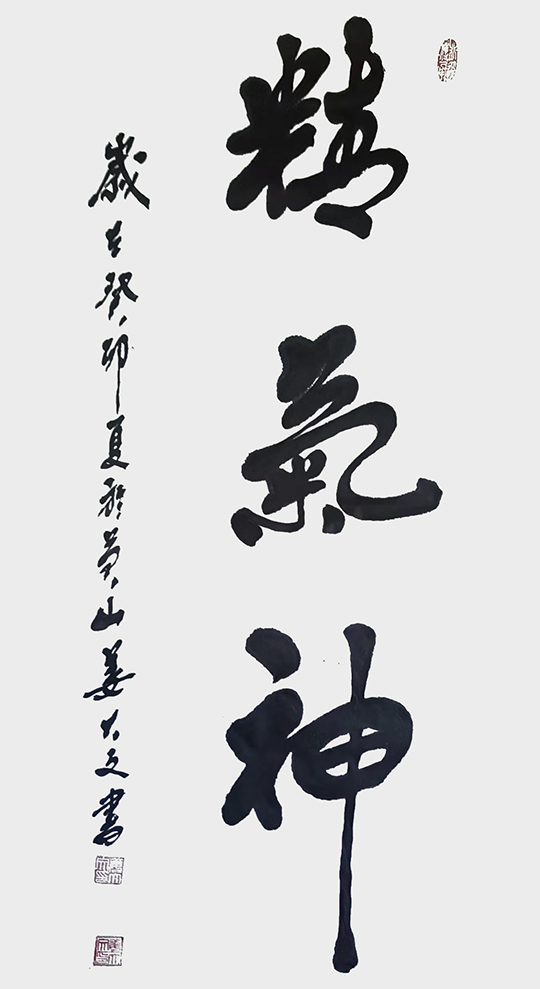 精氣神
歲在癸卯夏於黃山姜大文書